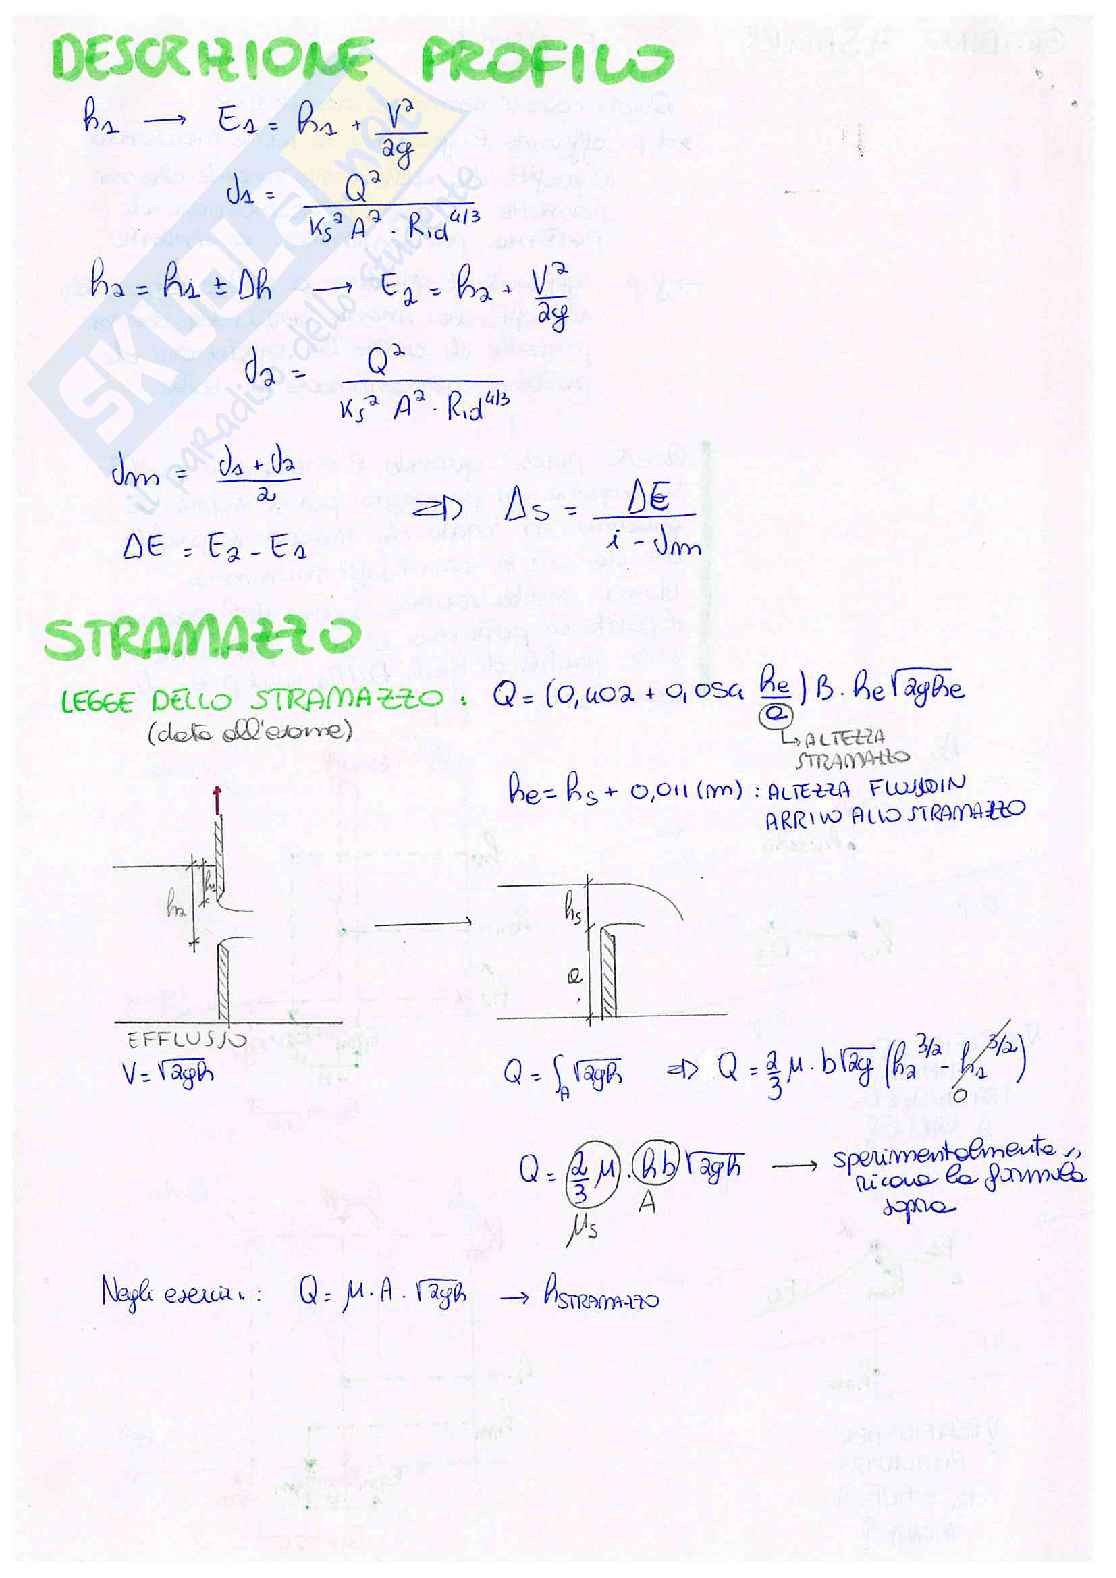 DESCRIZIONE PROFILO
h1 → E1 = h1 + V²/2g
J1 = Q² / Ks² A² · Rid^4/3
h2 = h1 ± Δh → E2 = h2 + V²/2g
J2 = Q² / Ks² A² · Rid^4/3
Jm = J1 + J2 / 2
ΔE = E2 - E1
⇒ Δs = ΔE / i - Jm
STRAMAZZO
LEGGE DELLO STRAMAZZO : Q = (0,402 + 0,054 he/a) B · he √2ghe
(data all'esame)
ALTEZZA
STRAMAZZO
he = hs + 0,011 (m) : ALTEZZA FLUSSO IN
ARRIVO ALLO STRAMAZZO
h1
h2
hs
a
EFFLUSSO
V = √2gh
Q = ∫A √2gh ⇒ Q = 2/3 μ · b √2g (h2^3/2 - h1^3/2)
0
Q = 2/3 μ · hb √2gh → sperimentalmente si
ricava la formula
sopra
μs
A
Negli esercizi : Q = μ · A · √2gh → hSTRAMAZZO
SKUOLA.net
il paradiso dello studente